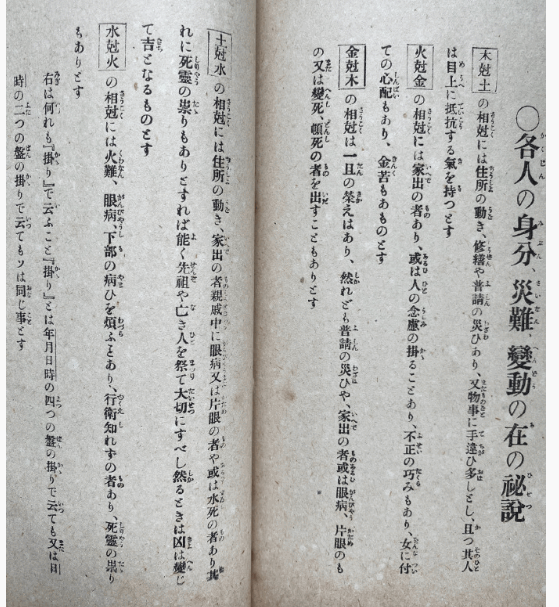 ○各人の身分、災難、變動の在の祕説
木尅土の相尅には住所の動き、修繕や普請の災ひあり、又物事に手違ひ多しとし、且つ其人
は目上に抵抗する氣を持つとす
火尅金の相尅には家出の者あり、或は人の念慮の掛ることあり、不正の巧みもあり、女に付
ての心配もあり、金苦もあるものとす
金尅木の相尅は一旦の榮えはあり、然れども普請の災ひや、家出の者或は眼病、片眼のも
の又は變死、頓死の者を出すこともありとす
土尅水の相尅には住所の動き、家出の者親戚中に眼病又は片眼の者や或は水死の者あり其
れに死靈の祟りもありとすれば能く先祖や亡き人を祭て大切にすべし然るときは凶は變じ
て吉となるものとす
水尅火の相尅には火難、眼病、下部の病ひを煩ふとあり、行衛知れずの者あり、死靈の祟り
もありとす
右は何れも『掛り』で云ふこと『掛り』とは年月日時の四つの盤の掛りで云ても又は日
時の二つの盤の掛りで云てもソは同じ事とす